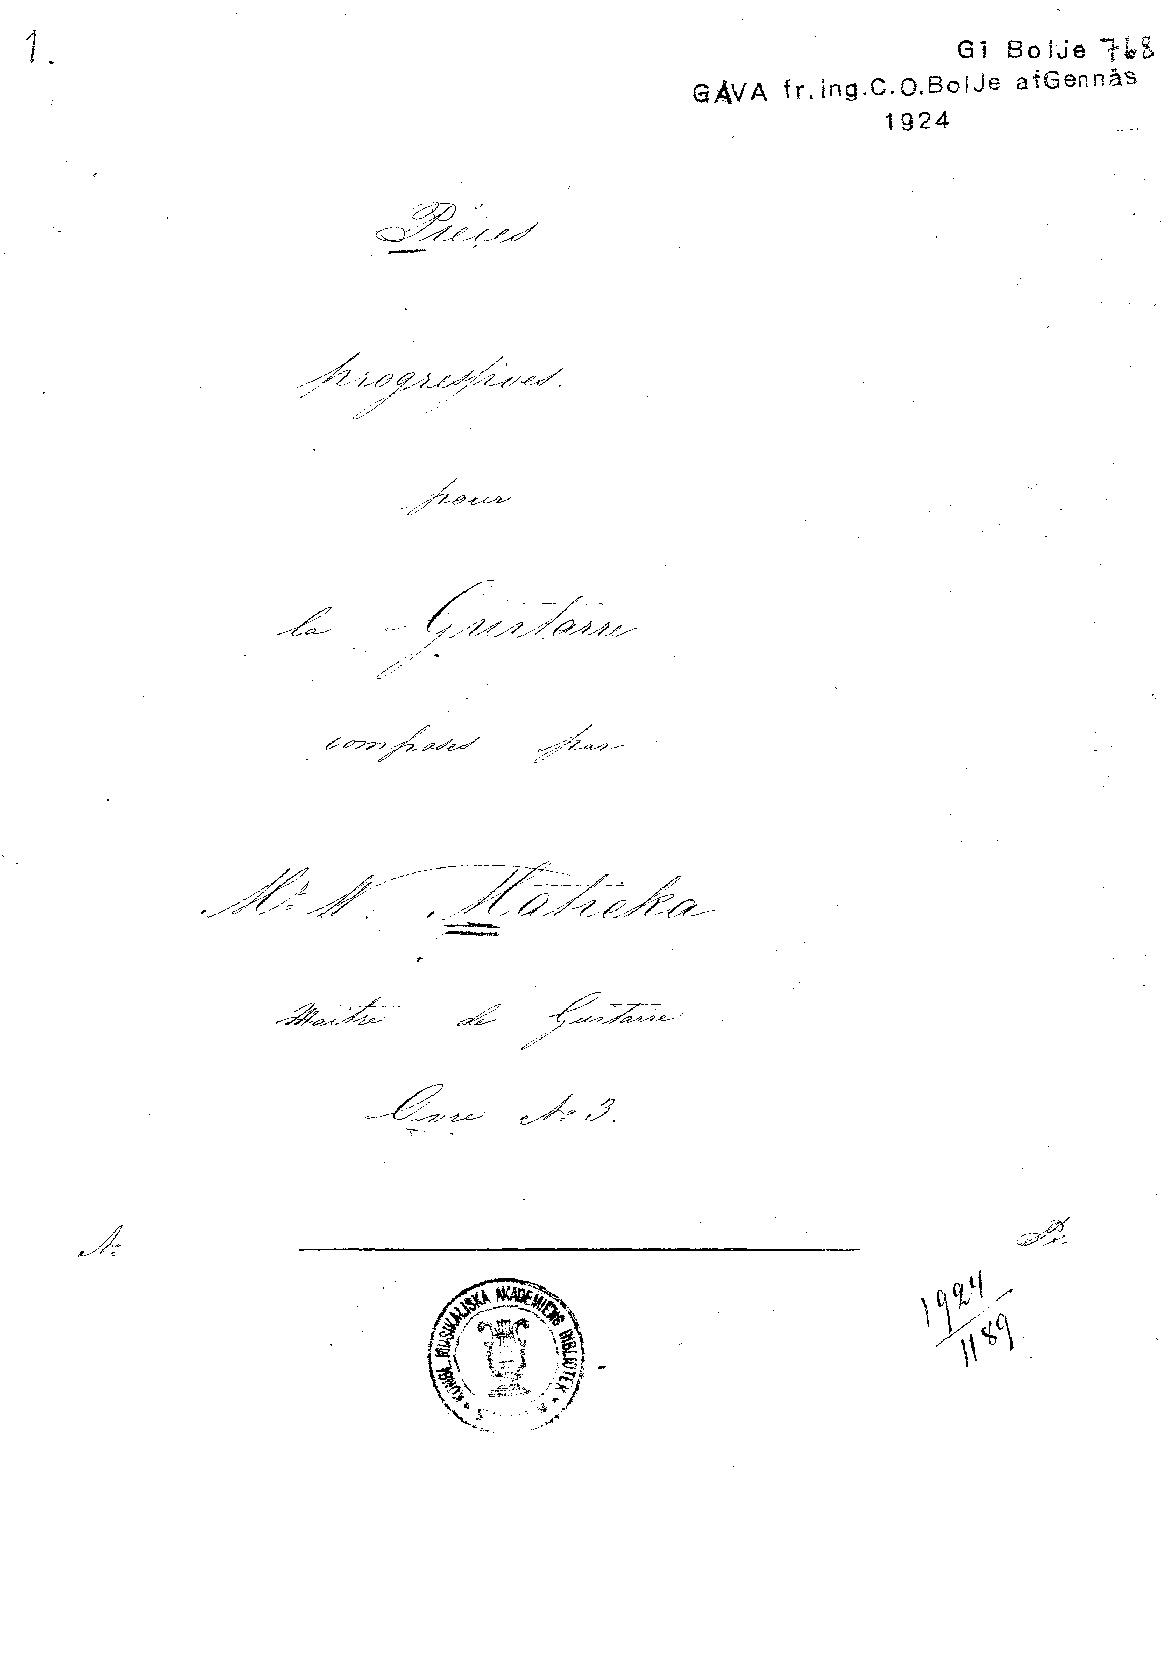 1.
Gi Bolje 768
GÅVA fr.ing.C.O.BolJe afGennäs
1924
Pièces
progressives.
pour
la Guitarre
composés par
Mr. W. Matieka
Maitre de Guitarre
Ouvre No 3.
No Pr.
KUNGL. MUSIKALISKA AKADEMIENS BIBLIOTEK
1924
1189